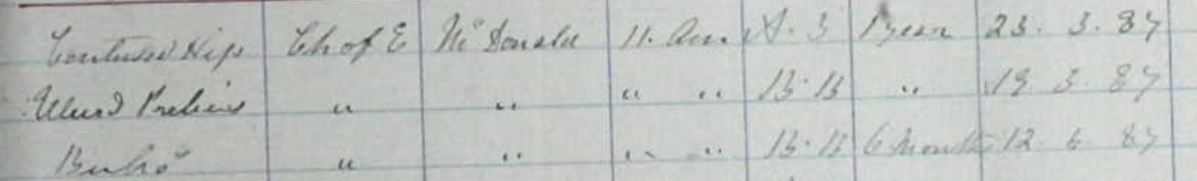 Contused Hip Ch of E McDonald 11. Am A. 3 1 year 23. 3. 87
Ulcerd " " " " B. B " 19 3. 87
Bubo " " " " B. B 6 Months 12. 6 87